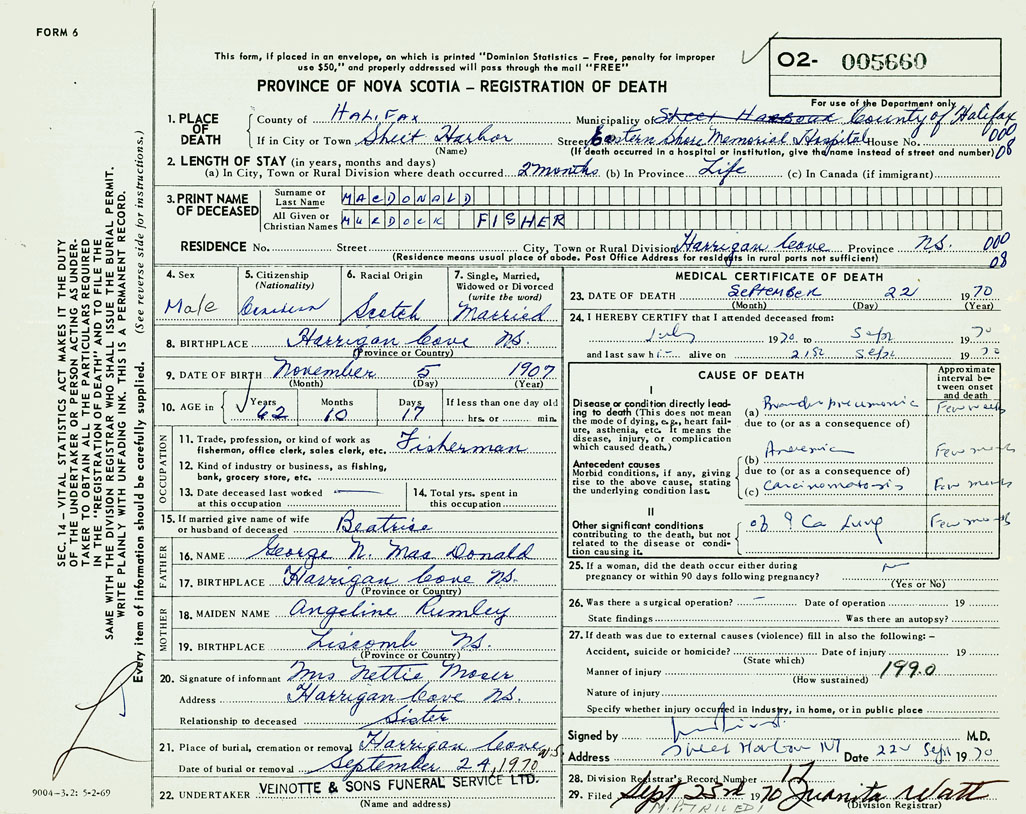 FORM 6
This form, if placed in an envelope, on which is printed "Dominion Statistics – Free, penalty for improper
use $50," and properly addressed will pass through the mail "FREE"
O2- 005660
For use of the Department only
PROVINCE OF NOVA SCOTIA – REGISTRATION OF DEATH
1. PLACE OF DEATH County of Halifax Municipality of Sheet Harbour County of Halifax
If in City or Town Sheet Harbor Street Eastern Shore Memorial Hospital House No. 000
(Name) (If death occurred in a hospital or institution, give the name instead of street and number) 08
2. LENGTH OF STAY (in years, months and days)
(a) In City, Town or Rural Division where death occurred 2 months (b) In Province Life (c) In Canada (if immigrant)
3. PRINT NAME OF DECEASED
Surname or Last Name MACDONALD
All Given or Christian Names MURDOCK FISHER
RESIDENCE No. Street City, Town or Rural Division Harrigan Cove Province NS. 000
(Residence means usual place of abode. Post Office Address for residents in rural parts not sufficient) 08
4. Sex Male
5. Citizenship (Nationality) Canadian
6. Racial Origin Scotch
7. Single, Married, Widowed or Divorced (write the word) Married
8. BIRTHPLACE Harrigan Cove NS.
(Province or Country)
9. DATE OF BIRTH November 5 1907
(Month) (Day) (Year)
10. AGE in Years 62 Months 10 Days 17 If less than one day old hrs. or min.
OCCUPATION
11. Trade, profession, or kind of work as fisherman, office clerk, sales clerk, etc. Fisherman
12. Kind of industry or business, as fishing, bank, grocery store, etc.
13. Date deceased last worked at this occupation
14. Total yrs. spent in this occupation
15. If married give name of wife or husband of deceased Beatrice
FATHER
16. NAME George N. Mac Donald
17. BIRTHPLACE Harrigan Cove NS.
(Province or Country)
MOTHER
18. MAIDEN NAME Angeline Rumley
19. BIRTHPLACE Liscomb NS.
(Province or Country)
20. Signature of informant Mrs Nettie Moser
Address Harrigan Cove NS.
Relationship to deceased Sister
21. Place of burial, cremation or removal Harrigan Cove N.S.
Date of burial or removal September 24, 1970
22. UNDERTAKER VEINOTTE & SONS FUNERAL SERVICE LTD.
(Name and address)
MEDICAL CERTIFICATE OF DEATH
23. DATE OF DEATH September 22 1970
(Month) (Day) (Year)
24. I HEREBY CERTIFY that I attended deceased from:
July 1970 to Sept 1970
and last saw him alive on 21st Sept 1970
CAUSE OF DEATH
Approximate interval between onset and death
I
Disease or condition directly leading to death (This does not mean the mode of dying, e.g., heart failure, asthenia, etc. It means the disease, injury, or complication which caused death.)
(a) Broncho pneumonia Few weeks
due to (or as a consequence of)
(b) Anaemia Few months
Antecedent causes
Morbid conditions, if any, giving rise to the above cause, stating the underlying condition last.
due to (or as a consequence of)
(c) Carcinomatosis Few months
II
Other significant conditions contributing to the death, but not related to the disease or condition causing it.
of ? Ca Lung Few months
25. If a woman, did the death occur either during pregnancy or within 90 days following pregnancy?
(Yes or No)
26. Was there a surgical operation? – Date of operation 19
State findings Was there an autopsy?
27. If death was due to external causes (violence) fill in also the following: –
Accident, suicide or homicide? Date of injury 19
(State which)
Manner of injury 199.0
(How sustained)
Nature of injury
Specify whether injury occurred in industry, in home, or in public place
Signed by M.D.
Address Sheet Harbor Date 22 Sept 1970
28. Division Registrar's Record Number 17
29. Filed Sept 23rd 1970 Juanita Watt
(Division Registrar)
SEC. 14 – VITAL STATISTICS ACT MAKES IT THE DUTY
OF THE UNDERTAKER OR PERSON ACTING AS UNDER-
TAKER TO OBTAIN ALL THE PARTICULARS REQUIRED
IN THE "REGISTRATION OF DEATH" AND TO FILE THE
SAME WITH THE DIVISION REGISTRAR WHO SHALL ISSUE THE BURIAL PERMIT.
WRITE PLAINLY WITH UNFADING INK. THIS IS A PERMANENT RECORD.
Every item of information should be carefully supplied. (See reverse side for instructions.)
9004-3.2: 5-2-69